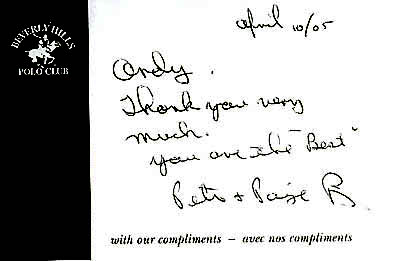 BEVERLY HILLS
POLO CLUB
April 10/05
Andy.
Thank you very
much.
you are the "Best"
+ Paige R
with our compliments – avec nos compliments